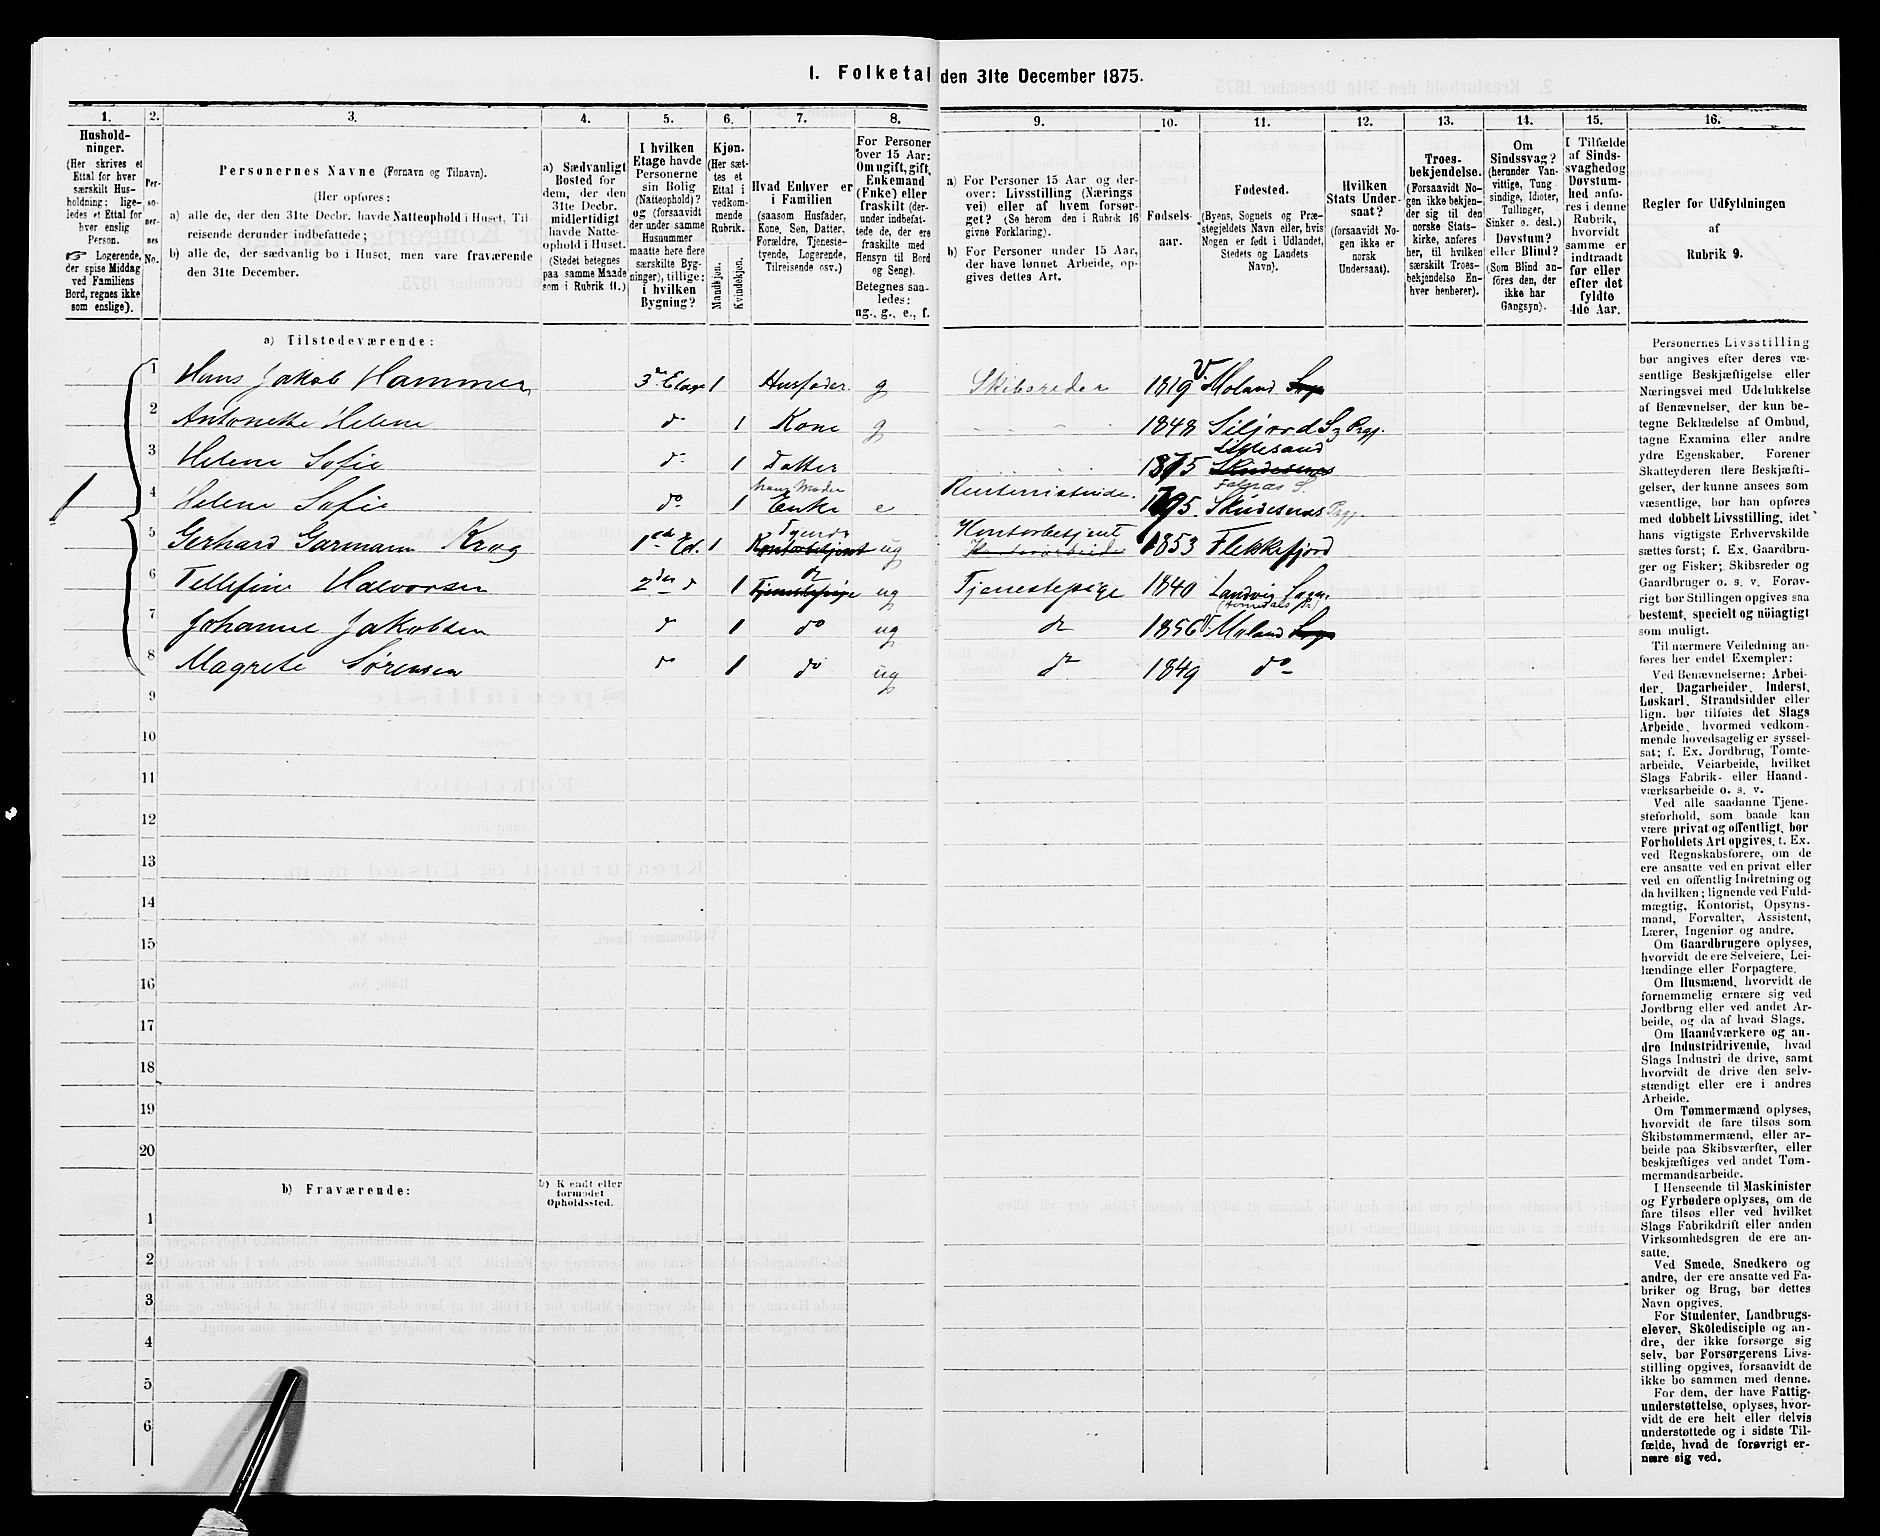 I. Folketal den 31te December 1875.
1. 2. 3. 4. 5. 6. 7. 8. 9. 10. 11. 12. 13. 14. 15. 16.
Hushold-
ninger.
(Her skrives et
Ettal for hver
særskilt Hus-
holdning; lige-
ledes et Ettal for
hver enslig
Person.
☞ Logerende,
der spise Middag
ved Familiens
Bord, regnes ikke
som enslige).
Per-
so-
ner-
nes
No.
Personernes Navne (Fornavn og Tilnavn).
(Her opføres:
a) alle de, der den 31te Decbr. havde Natteophold i Huset, Til-
reisende derunder indbefattede;
b) alle de, der sædvanlig bo i Huset, men vare fraværende
den 31te December.
a) Sædvanligt
Bosted for
dem, der den
31te Decbr.
midlertidigt
havde Natte-
ophold i Huset.
(Stedet betegnes
paa samme Maade
som i Rubrik 11.)
I hvilken
Etage havde
Personerne
sin Bolig
(Natteophold)?
og (forsaavidt
der under samme
Husnummer
maatte høre flere
særskilte Byg-
ninger), tillige:
i hvilken
Bygning?
Kjøn.
(Her sæt-
tes et
Ettal i
vedkom-
mende
Rubrik.
Mandkjøn.
Kvindekjøn.
Hvad Enhver er
i Familien
(saasom Husfader,
Kone, Søn, Datter,
Forældre, Tjeneste-
tyende, Logerende,
Tilreisende osv.)
For Personer
over 15 Aar:
Om ugift, gift,
Enkemand
(Enke) eller
fraskilt (der-
under indbefat-
tede de, der ere
fraskilte med
Hensyn til Bord
og Seng).
Betegnes saa-
ledes:
ug., g., e., f.
a) For Personer 15 Aar og der-
over: Livsstilling (Nærings
vei) eller af hvem forsør-
get? (Se herom den i Rubrik 16
givne Forklaring).
b) For Personer under 15 Aar,
der have lønnet Arbeide, op-
gives dettes Art.
Fødsels-
aar.
Fødested.
(Byens, Sognets og Præ-
stegjeldets Navn eller, hvis
Nogen er født i Udlandet,
Stedets og Landets
Navn).
Hvilken
Stats Under-
saat?
(forsaavidt No-
gen ikke er
norsk
Undersaat).
Troes-
bekjendelse.
(Forsaavidt No-
gen ikke bekjen-
der sig til den
norske Stats-
kirke, anføres
her, til hvilken
særskilt Troes-
bekjendelse En-
hver henhører).
Om
Sindssvag?
(herunder Van-
vittige, Tung
sindige, Idioter,
Tullinger,
Sinker o. desl.)
Døvstum?
eller Blind?
(Som Blind an-
føres den, der
ikke har
Gangsyn).
I Tilfælde
af Sinds-
svaghed og
Døvstum-
hed anfø-
res i denne
Rubrik,
hvorvidt
samme er
indtraadt
før eller
efter det
fyldte
4de Aar.
Regler for Udfyldningen
af
Rubrik 9.
a) Tilstedeværende:
1 Hans Jakob Hammer 3die Etage 1 Husfader g Skibsreder 1819 V. Moland Sogn
2 Antonette Helene do 1 Kone g 1848 Siljord S. Prgj.
3 Helene Sofie do 1 Datter 1875 Lillesand Skudesnes
1 4 Helene Sofie do 1 hans Moder Enke e Rentenistinde 1795 Falnæs S. Skudesnes Prgj
5 Gerhard Garmann Krog 1ste Et. 1 Tyende Kontorbetjent ug Kontorbetjent Kontorarbeide 1853 Flekkefjord
6 Tellefine Halvorsen 2den do 1 do Tjenestepige ug Tjenestepige 1840 Landvig Sogn
7 Johanne Jakobsen do 1 do ug do 1856 V. Moland Sogn
8 Magrete Sørensen do 1 do ug do 1849 do
9
10
11
12
13
14
15
16
17
18
19
20
b) Fraværende:
b) Kjendt eller
formodet
Opholdssted.
1
2
3
4
5
6
Personernes Livsstilling
bør angives efter deres væ-
sentlige Beskjæftigelse eller
Næringsvei med Udelukkelse
af Benævnelser, der kun be-
tegne Beklædelse af Ombud,
tagne Examina eller andre
ydre Egenskaber. Forener
Skatteyderen flere Beskjæfti-
gelser, der kunne ansees som
væsentlige, bør han opføres
med dobbelt Livsstilling, idet
hans vigtigste Erhvervskilde
sættes først; f. Ex. Gaardbru-
ger og Fisker; Skibsreder og
Gaardbruger o. s. v. Forøv-
rigt bør Stillingen opgives saa
bestemt, specielt og nøiagtigt
som muligt.
Til nærmere Veiledning an-
føres her endel Exempler:
Ved Benævnelserne: Arbei-
der, Dagarbeider, Inderst,
Løskarl, Strandsidder eller
lign. bør tilføies det Slags
Arbeide, hvormed vedkom-
mende hovedsagelig er syssel-
sat; f. Ex. Jordbrug, Tomte-
arbeide, Veiarbeide, hvilket
Slags Fabrik- eller Haand-
værksarbeide o. s. v.
Ved alle saadanne Tjene-
steforhold, som baade kan
være privat og offentligt, bør
Forholdets Art opgives, t. Ex.
ved Regnskabsførere, om de
ere ansatte ved en privat eller
ved en offentlig Indretning og
da hvilken; lignende ved Fuld-
mægtig, Kontorist, Opsyns-
mand, Forvalter, Assistent,
Lærer, Ingeniør og andre.
Om Gaardbrugere oplyses,
hvorvidt de ere Selveiere, Lei-
lændinge eller Forpagtere.
Om Husmænd, hvorvidt de
fornemmelig ernære sig ved
Jordbrug eller ved andet Ar-
beide, og da af hvad Slags.
Om Haandværkere og an-
dre Industridrivende, hvad
Slags Industri de drive, samt
hvorvidt de drive den selv-
stændigt eller ere i andres
Arbeide.
Om Tømmermænd oplyses,
hvorvidt de fare tilsøs som
Skibstømmermænd, eller ar-
beide paa Skibsværfter, eller
beskjæftiges ved andet Tøm-
mermandsarbeide.
I Henseende til Maskinister
og Fyrbødere oplyses, om de
fare tilsøs eller ved hvilket
Slags Fabrikdrift eller anden
Virksomhedsgren de ere an-
satte.
Ved Smede, Snedkere og
andre, der ere ansatte ved Fa-
briker og Brug, bør dettes
Navn opgives.
For Studenter, Landbrugs-
elever, Skoledisciple og an-
dre, der ikke forsørge sig
selv, bør Forsørgerens Livs-
stilling opgives, forsaavidt de
ikke bo sammen med denne.
For dem, der have Fattig-
understøttelse, oplyses, hvor-
vidt de ere helt eller delvis
understøttede og i sidste Til-
fælde, hvad de forøvrigt er-
nære sig ved.